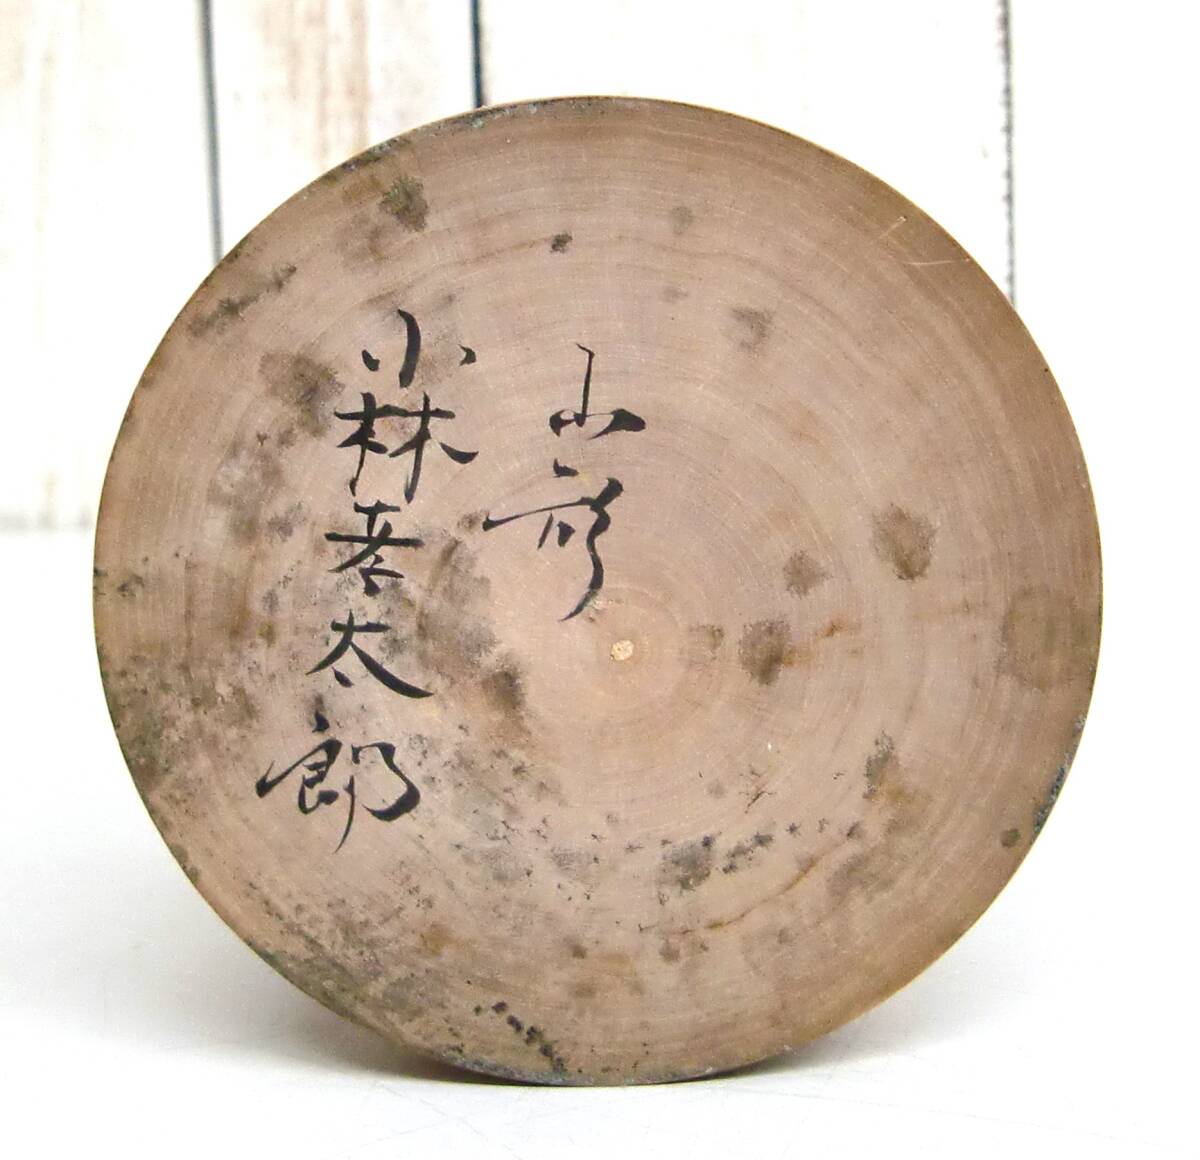 山形
小林孝太郎